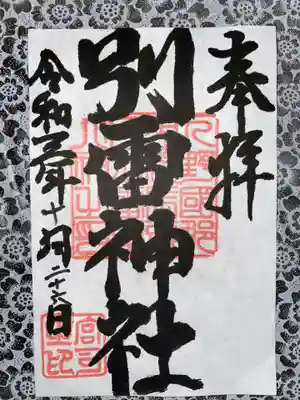 奉拝
別雷神社
令和三年十月二十六日